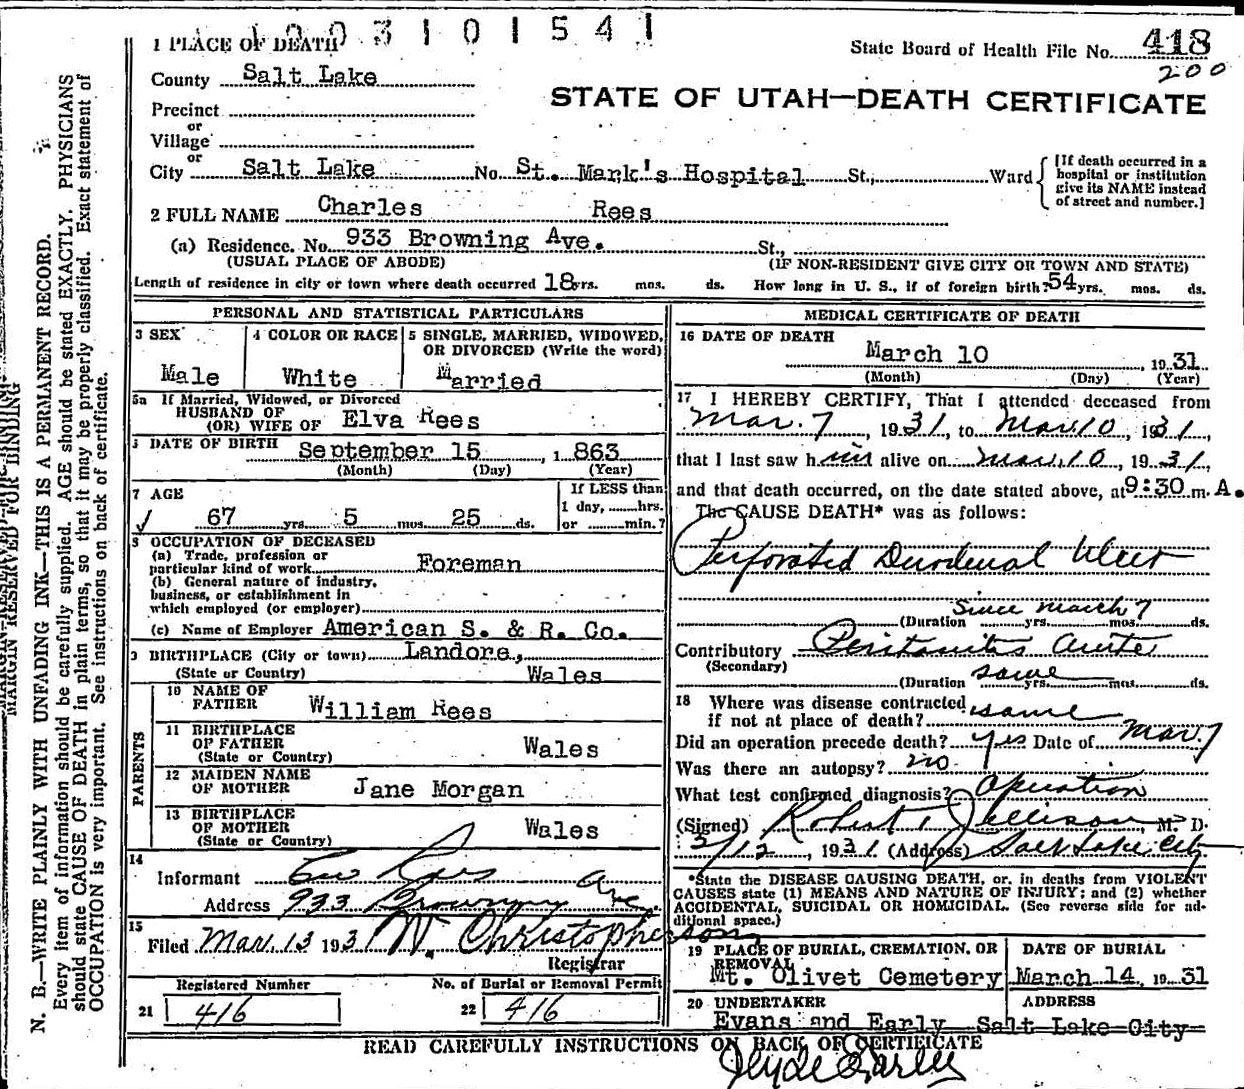 1003101541
1 PLACE OF DEATH
State Board of Health File No. 418
200
County Salt Lake
STATE OF UTAH—DEATH CERTIFICATE
Precinct
or
Village
or
City Salt Lake No. St. Mark's Hospital St., Ward
[If death occurred in a hospital or institution give its NAME instead of street and number.]
2 FULL NAME Charles Rees
(a) Residence. No. 933 Browning Ave. St.,
(USUAL PLACE OF ABODE) (IF NON-RESIDENT GIVE CITY OR TOWN AND STATE)
Length of residence in city or town where death occurred 18 yrs. mos. ds. How long in U. S., if of foreign birth? 54 yrs. mos. ds.
PERSONAL AND STATISTICAL PARTICULARS
3 SEX
Male
4 COLOR OR RACE
White
5 SINGLE, MARRIED, WIDOWED,
OR DIVORCED (Write the word)
Married
5a If Married, Widowed, or Divorced
HUSBAND OF
(OR) WIFE OF Elva Rees
DATE OF BIRTH September 15, 1863
(Month) (Day) (Year)
7 AGE
67 yrs. 5 mos. 25 ds.
If LESS than
1 day, hrs.
or min.?
8 OCCUPATION OF DECEASED
(a) Trade, profession or
particular kind of work Foreman
(b) General nature of industry,
business, or establishment in
which employed (or employer)
(c) Name of Employer American S. & R. Co.
9 BIRTHPLACE (City or town) Landore,
(State or Country) Wales
PARENTS
10 NAME OF
FATHER William Rees
11 BIRTHPLACE
OF FATHER Wales
(State or Country)
12 MAIDEN NAME
OF MOTHER Jane Morgan
13 BIRTHPLACE
OF MOTHER Wales
(State or Country)
14
Informant Rees
Address 933 Browning Ave.
15
Filed Mar. 13 1931 W. Christopherson
Registrar
Registered Number
21 416
No. of Burial or Removal Permit
22 416
MEDICAL CERTIFICATE OF DEATH
16 DATE OF DEATH
March 10, 1931
(Month) (Day) (Year)
17 I HEREBY CERTIFY, That I attended deceased from
Mar. 7, 1931, to Mar. 10, 1931,
that I last saw him alive on Mar. 10, 1931,
and that death occurred, on the date stated above, at 9:30 m. A.
The CAUSE DEATH* was as follows:
Perforated Duodenal Ulcer
Since March 7
(Duration yrs. mos. ds.
Contributory Peritonitis acute
(Secondary)
(Duration same yrs. mos. ds.
18 Where was disease contracted
if not at place of death? same
Did an operation precede death? Yes Date of Mar. 7
Was there an autopsy? no
What test confirmed diagnosis? Operation
(Signed) Robert T. Jellison, M. D.
3/12, 1931. (Address) Salt Lake City
*State the DISEASE CAUSING DEATH, or, in deaths from VIOLENT
CAUSES state (1) MEANS AND NATURE OF INJURY; and (2) whether
ACCIDENTAL, SUICIDAL OR HOMICIDAL. (See reverse side for ad-
ditional space.)
19 PLACE OF BURIAL, CREMATION, OR
REMOVAL
Mt. Olivet Cemetery
DATE OF BURIAL
March 14, 1931
20 UNDERTAKER
Evans and Early
ADDRESS
Salt Lake City
READ CAREFULLY INSTRUCTIONS ON BACK OF CERTIFICATE
Clyde Early
MARGIN RESERVED FOR BINDING
N. B.—WRITE PLAINLY WITH UNFADING INK—THIS IS A PERMANENT RECORD.
Every item of information should be carefully supplied. AGE should be stated EXACTLY. PHYSICIANS
should state CAUSE OF DEATH in plain terms, so that it may be properly classified. Exact statement of
OCCUPATION is very important. See instructions on back of certificate.